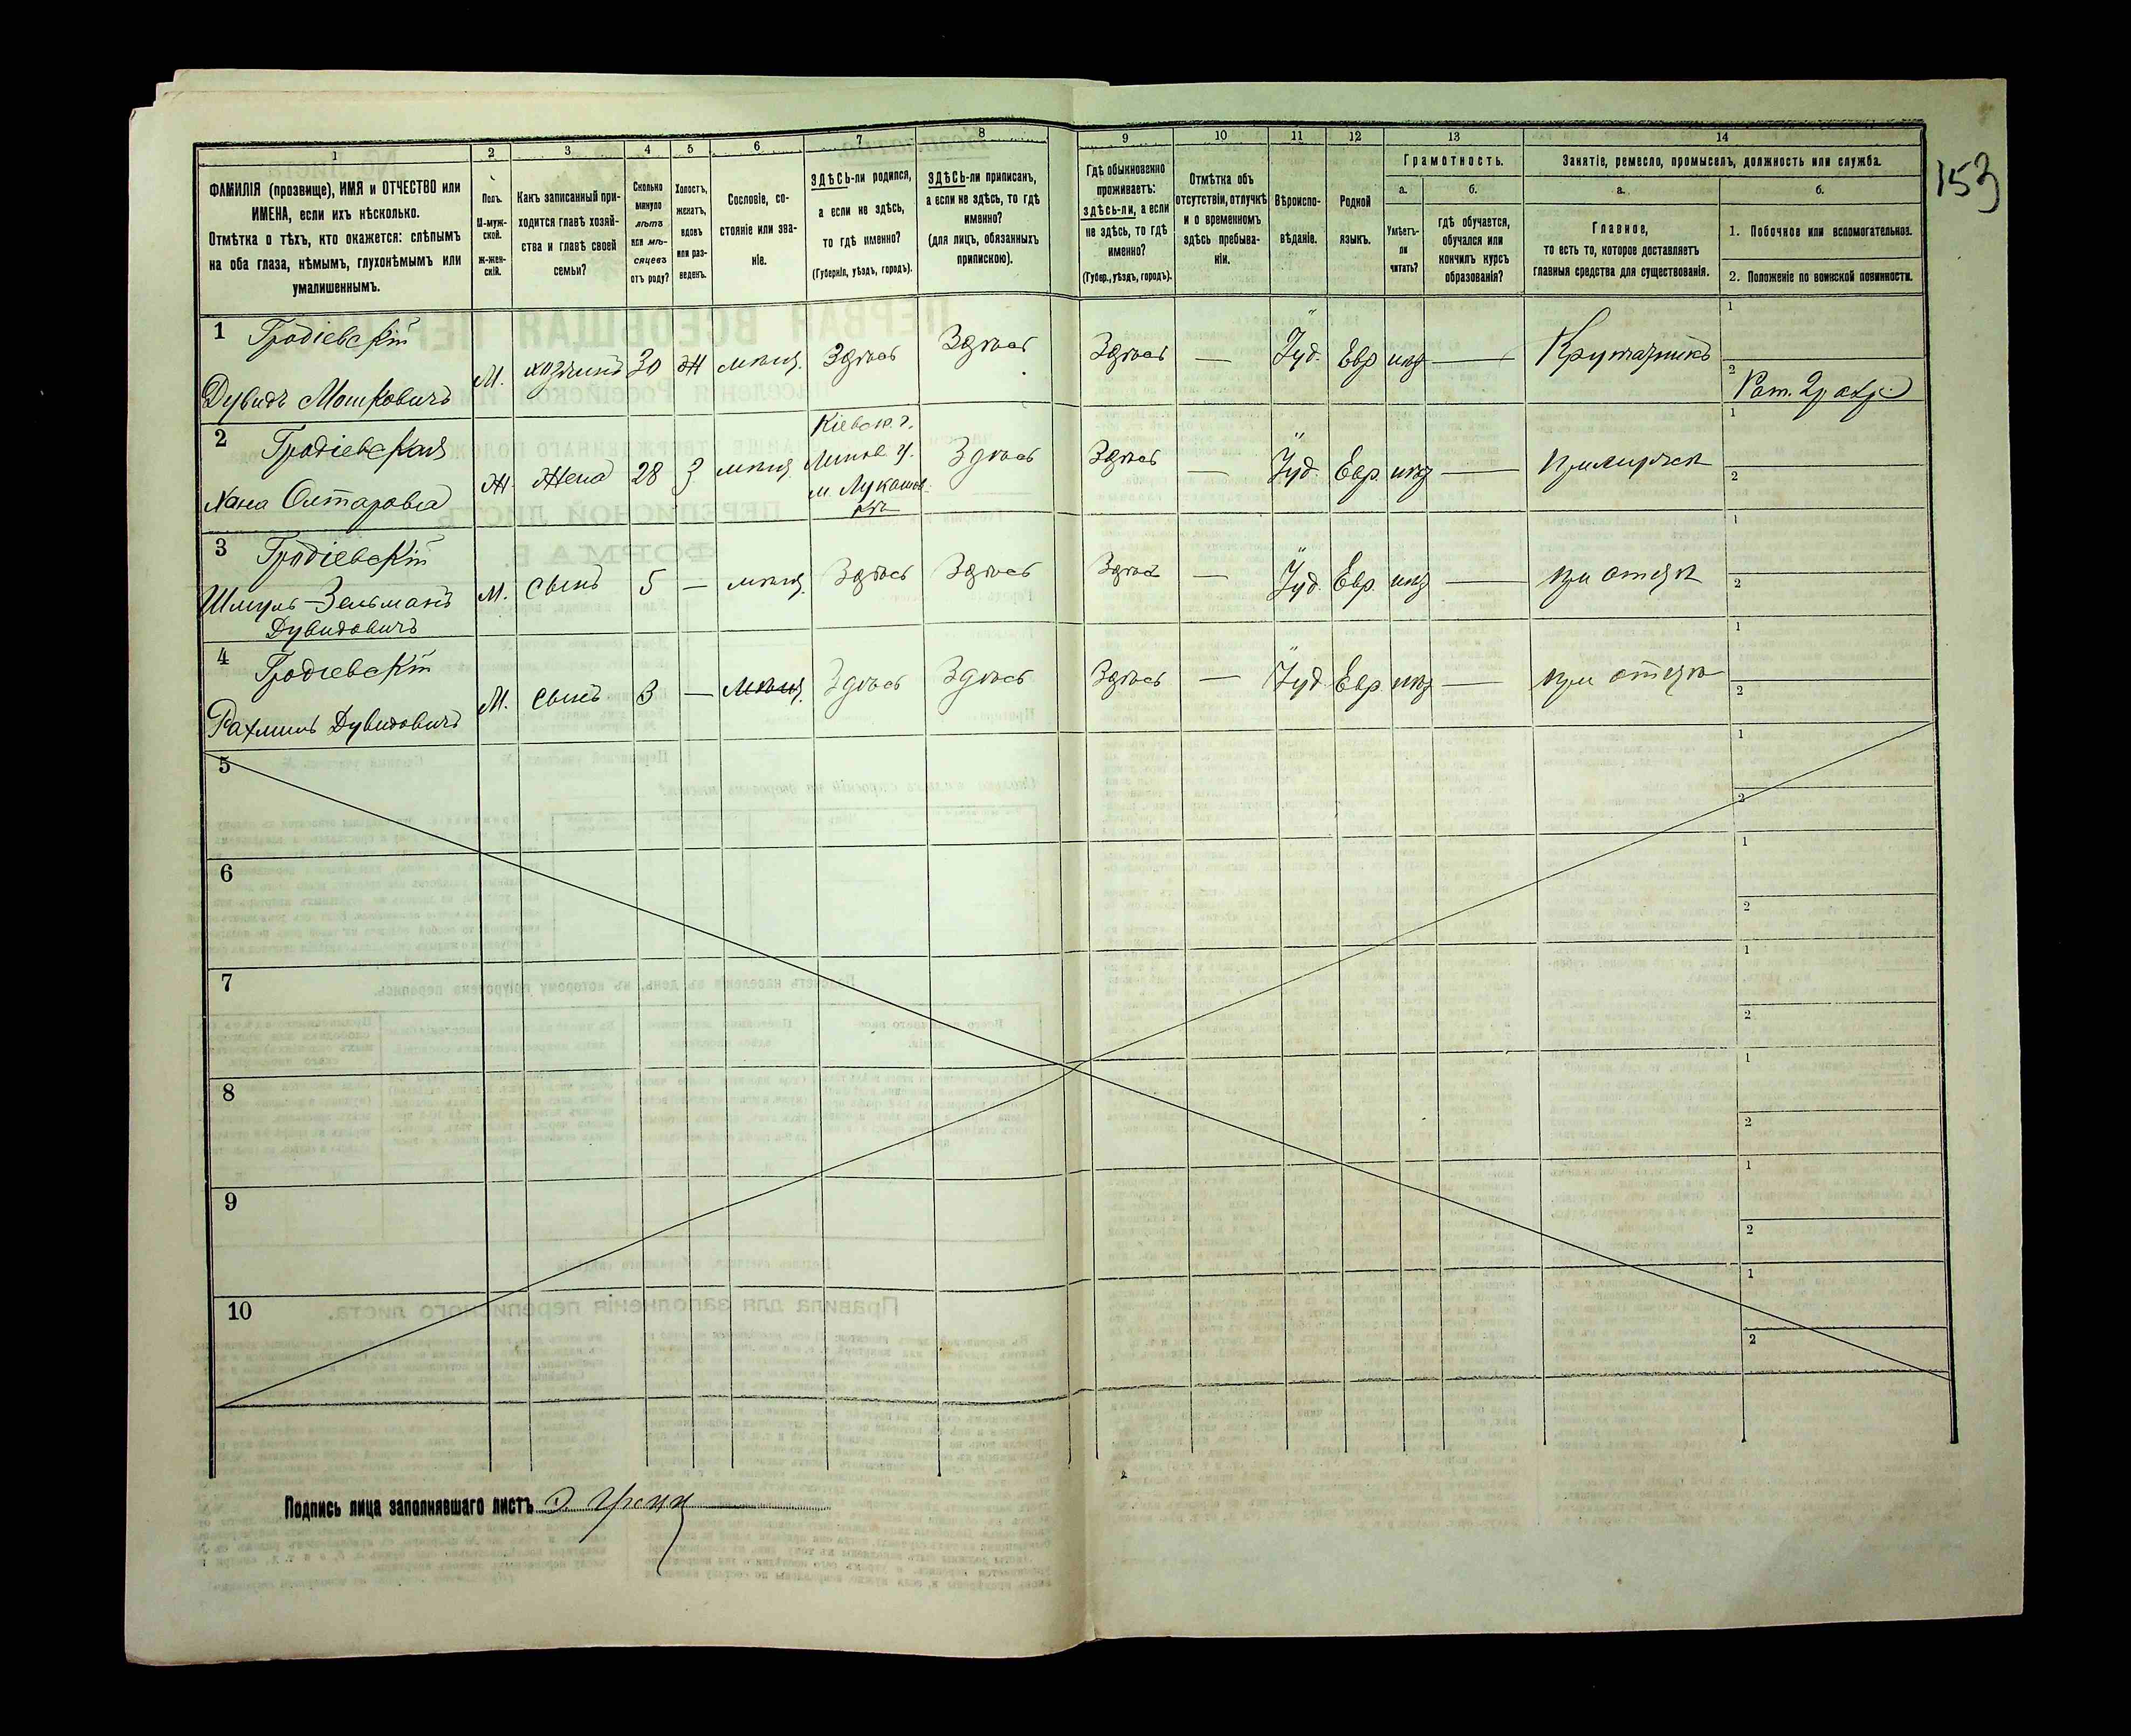 153
1
2
3
4
5
6
7
8
9
10
11
12
13
14
ФАМИЛІЯ (прозвище), ИМЯ и ОТЧЕСТВО или
ИМЕНА, если ихъ нѣсколько.
Отмѣтка о тѣхъ, кто окажется: слѣпымъ
на оба глаза, нѣмымъ, глухонѣмымъ или
умалишеннымъ.
Полъ.
М-муж-
ской.
Ж-жен-
скій.
Какъ записанный при-
ходится главѣ хозяй-
ства и главѣ своей
семьи?
Сколько
минуло
лѣтъ
или мѣ-
сяцевъ
отъ роду?
Холостъ,
женатъ,
вдовъ
или раз-
веденъ.
Сословіе, со-
стояніе или зва-
ніе.
ЗДѢСЬ-ли родился,
а если не здѣсь,
то гдѣ именно?
(Губернія, уѣздъ, городъ).
ЗДѢСЬ-ли приписанъ,
а если не здѣсь, то гдѣ
именно?
(для лицъ, обязанныхъ
припискою).
Гдѣ обыкновенно
проживаетъ:
здѣсь-ли, а если
не здѣсь, то гдѣ
именно?
(Губер., уѣздъ, городъ).
Отмѣтка объ
отсутствіи, отлучкѣ
и о временномъ
здѣсь пребыва-
ніи.
Вѣроиспо-
вѣданіе.
Родной
языкъ.
Грамотность.
а.
Умѣетъ-
ли
читать?
б.
гдѣ обучается,
обучался или
кончилъ курсъ
образованія?
Занятіе, ремесло, промыселъ, должность или служба.
а.
Главное,
то есть то, которое доставляетъ
главныя средства для существованія.
б.
1. Побочное или вспомогательное.
2. Положеніе по воинской повинности.
1 Гродіевскій
Дувидъ Мошковичъ
М. хозяинъ 30 Ж мѣщ. Здѣсь Здѣсь Здѣсь — Іуд. Евр нѣт —
1
2
2 Гродіевская
Хана
Ж. Жена 28 З мѣщ.
Кіевск. г.
Липов у.
м. Лукашов-
кѣ
Здѣсь Здѣсь — Іуд. Евр. нѣт —
1
2
3 Гродіевскій
Шмуль-Зельманъ
Дувидовичъ
М. сынъ 5 — мѣщ. Здѣсь Здѣсь Здѣсь — Іуд. Евр. нѣт — при отцѣ
1
2
4 Гродіевскій
Рахмиль Дувидовичъ
М. сынъ 3 — мѣщ. Здѣсь Здѣсь Здѣсь — Іуд. Евр нѣт — при отцѣ
1
2
5
1
2
6
1
2
7
1
2
8
1
2
9
1
2
10
1
2
Подпись лица заполнявшаго листъ